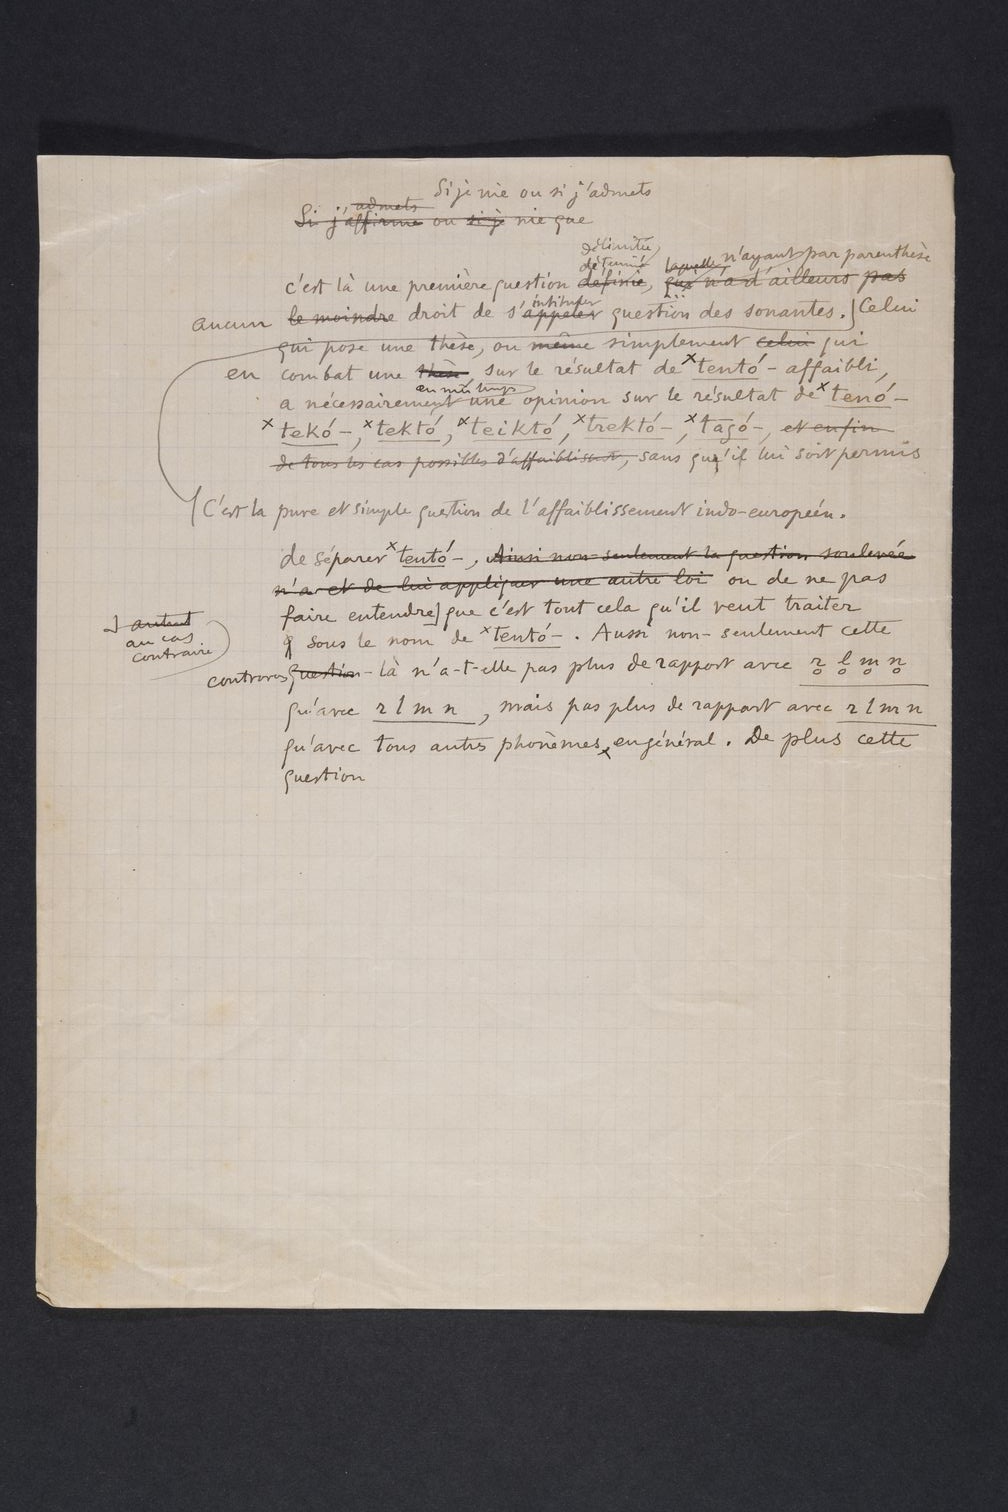 Si je nie ou si j'admets
admets
Si j'affirme ou si je nie que
délimitée
laquelle n'ayant par parenthèse
c'est là une première question définie, qui n'a d'ailleurs pas
instituer
aucun le moindre droit de s'appeler question des sonantes.] Celui
qui pose une thèse, ou même simplement celui qui
en combat une thèse sur le résultat de ˣtentó- affaibli,
en mê temps
a nécessairement une opinion sur le résultat de ˣtenó-
ˣtekó-, ˣtektó, ˣteiktó, ˣtrektó-, ˣtagó-, et enfin
de tous les cas possibles d'affaiblissent, sans qu'il lui soit permis
C'est la pure et simple question de l'affaiblissement indo-européen.
de séparer ˣtentó-, Ainsi non-seulement la question soulevée
n'a et de lui appliquer une autre loi ou de ne pas
faire entendre] que c'est tout cela qu'il veut traiter
autant
au cas
contraire
sous le nom de ˣtentó-. Aussi non-seulement cette
controvers question-là n'a-t-elle pas plus de rapport avec r̥ l̥ m̥ n̥
qu'avec r l m n, mais pas plus de rapport avec r l m n
qu'avec tous autres phonèmes, en général. De plus cette
question